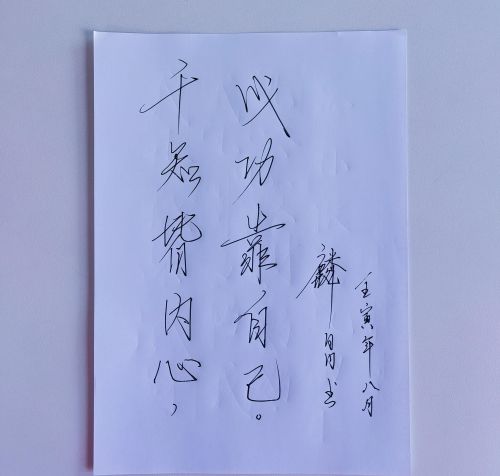 千皆内心，
成功靠自己。
麟书
壬寅年八月